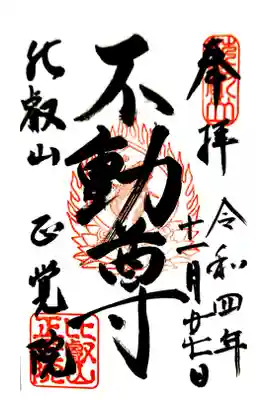 奉拝
令和四年
十一月廿七日
不動尊
比叡山
正覚院
比叡山
正覚院